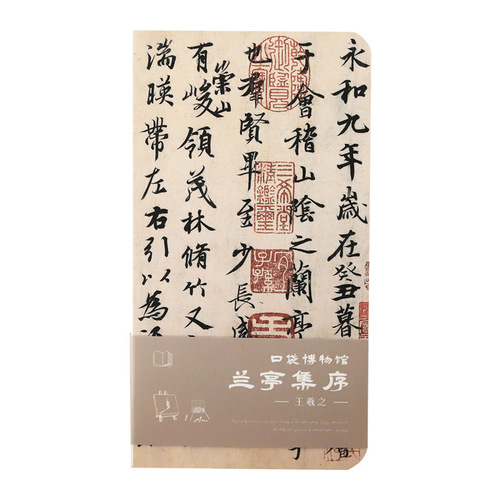 永和九年歲在癸丑暮
于會稽山陰之蘭亭
也羣賢畢至少長咸
有崇山峻領茂林脩竹又
湍暎帶左右引以為
三希堂精鑑璽
口袋博物馆
兰亭集序
— 王羲之 —